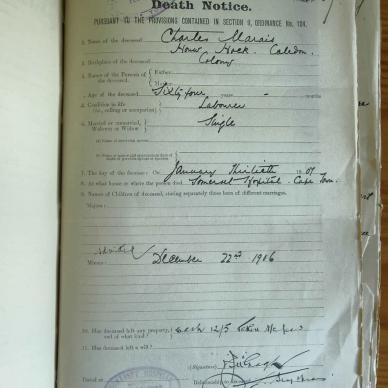 Death Notice.
PURSUANT TO THE PROVISIONS CONTAINED IN SECTION 9, ORDINANCE No. 104.
1. Name of the deceased Charles Marais
Houw Hoek. Caledon.
2. Birthplace of the deceased Colony
3. Names of the Parents of the deceased { Father
Mother
4. Age of the deceased Sixty four years - months
5. Condition in life (i.e., calling or occupation) { Labourer
6. Married or unmarried, Widower or Widow { Single
(a) Name of surviving spouse
7. The day of the decease: On January Thirtieth 1907
8. At what house or where the person died Somerset Hospital. Cape Town.
9. Names of Children of deceased, stating separately those born of different marriages.
Majors:
Admitted
Minors: December 22nd 1906
10. Has deceased left any property, and of what kind? { Cash 12/5
11. Has deceased left a will?
(Signature)
Dated at